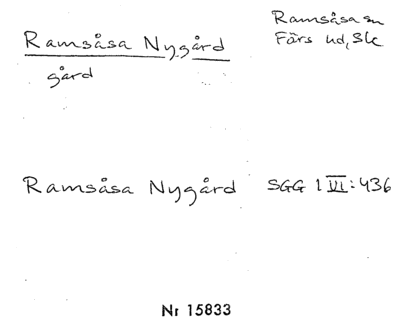 Ramsåsa Nygård
gård
Ramsåsa sn
Färs hd, Sk
Ramsåsa Nygård SGG 1 VI:436
Nr 15833